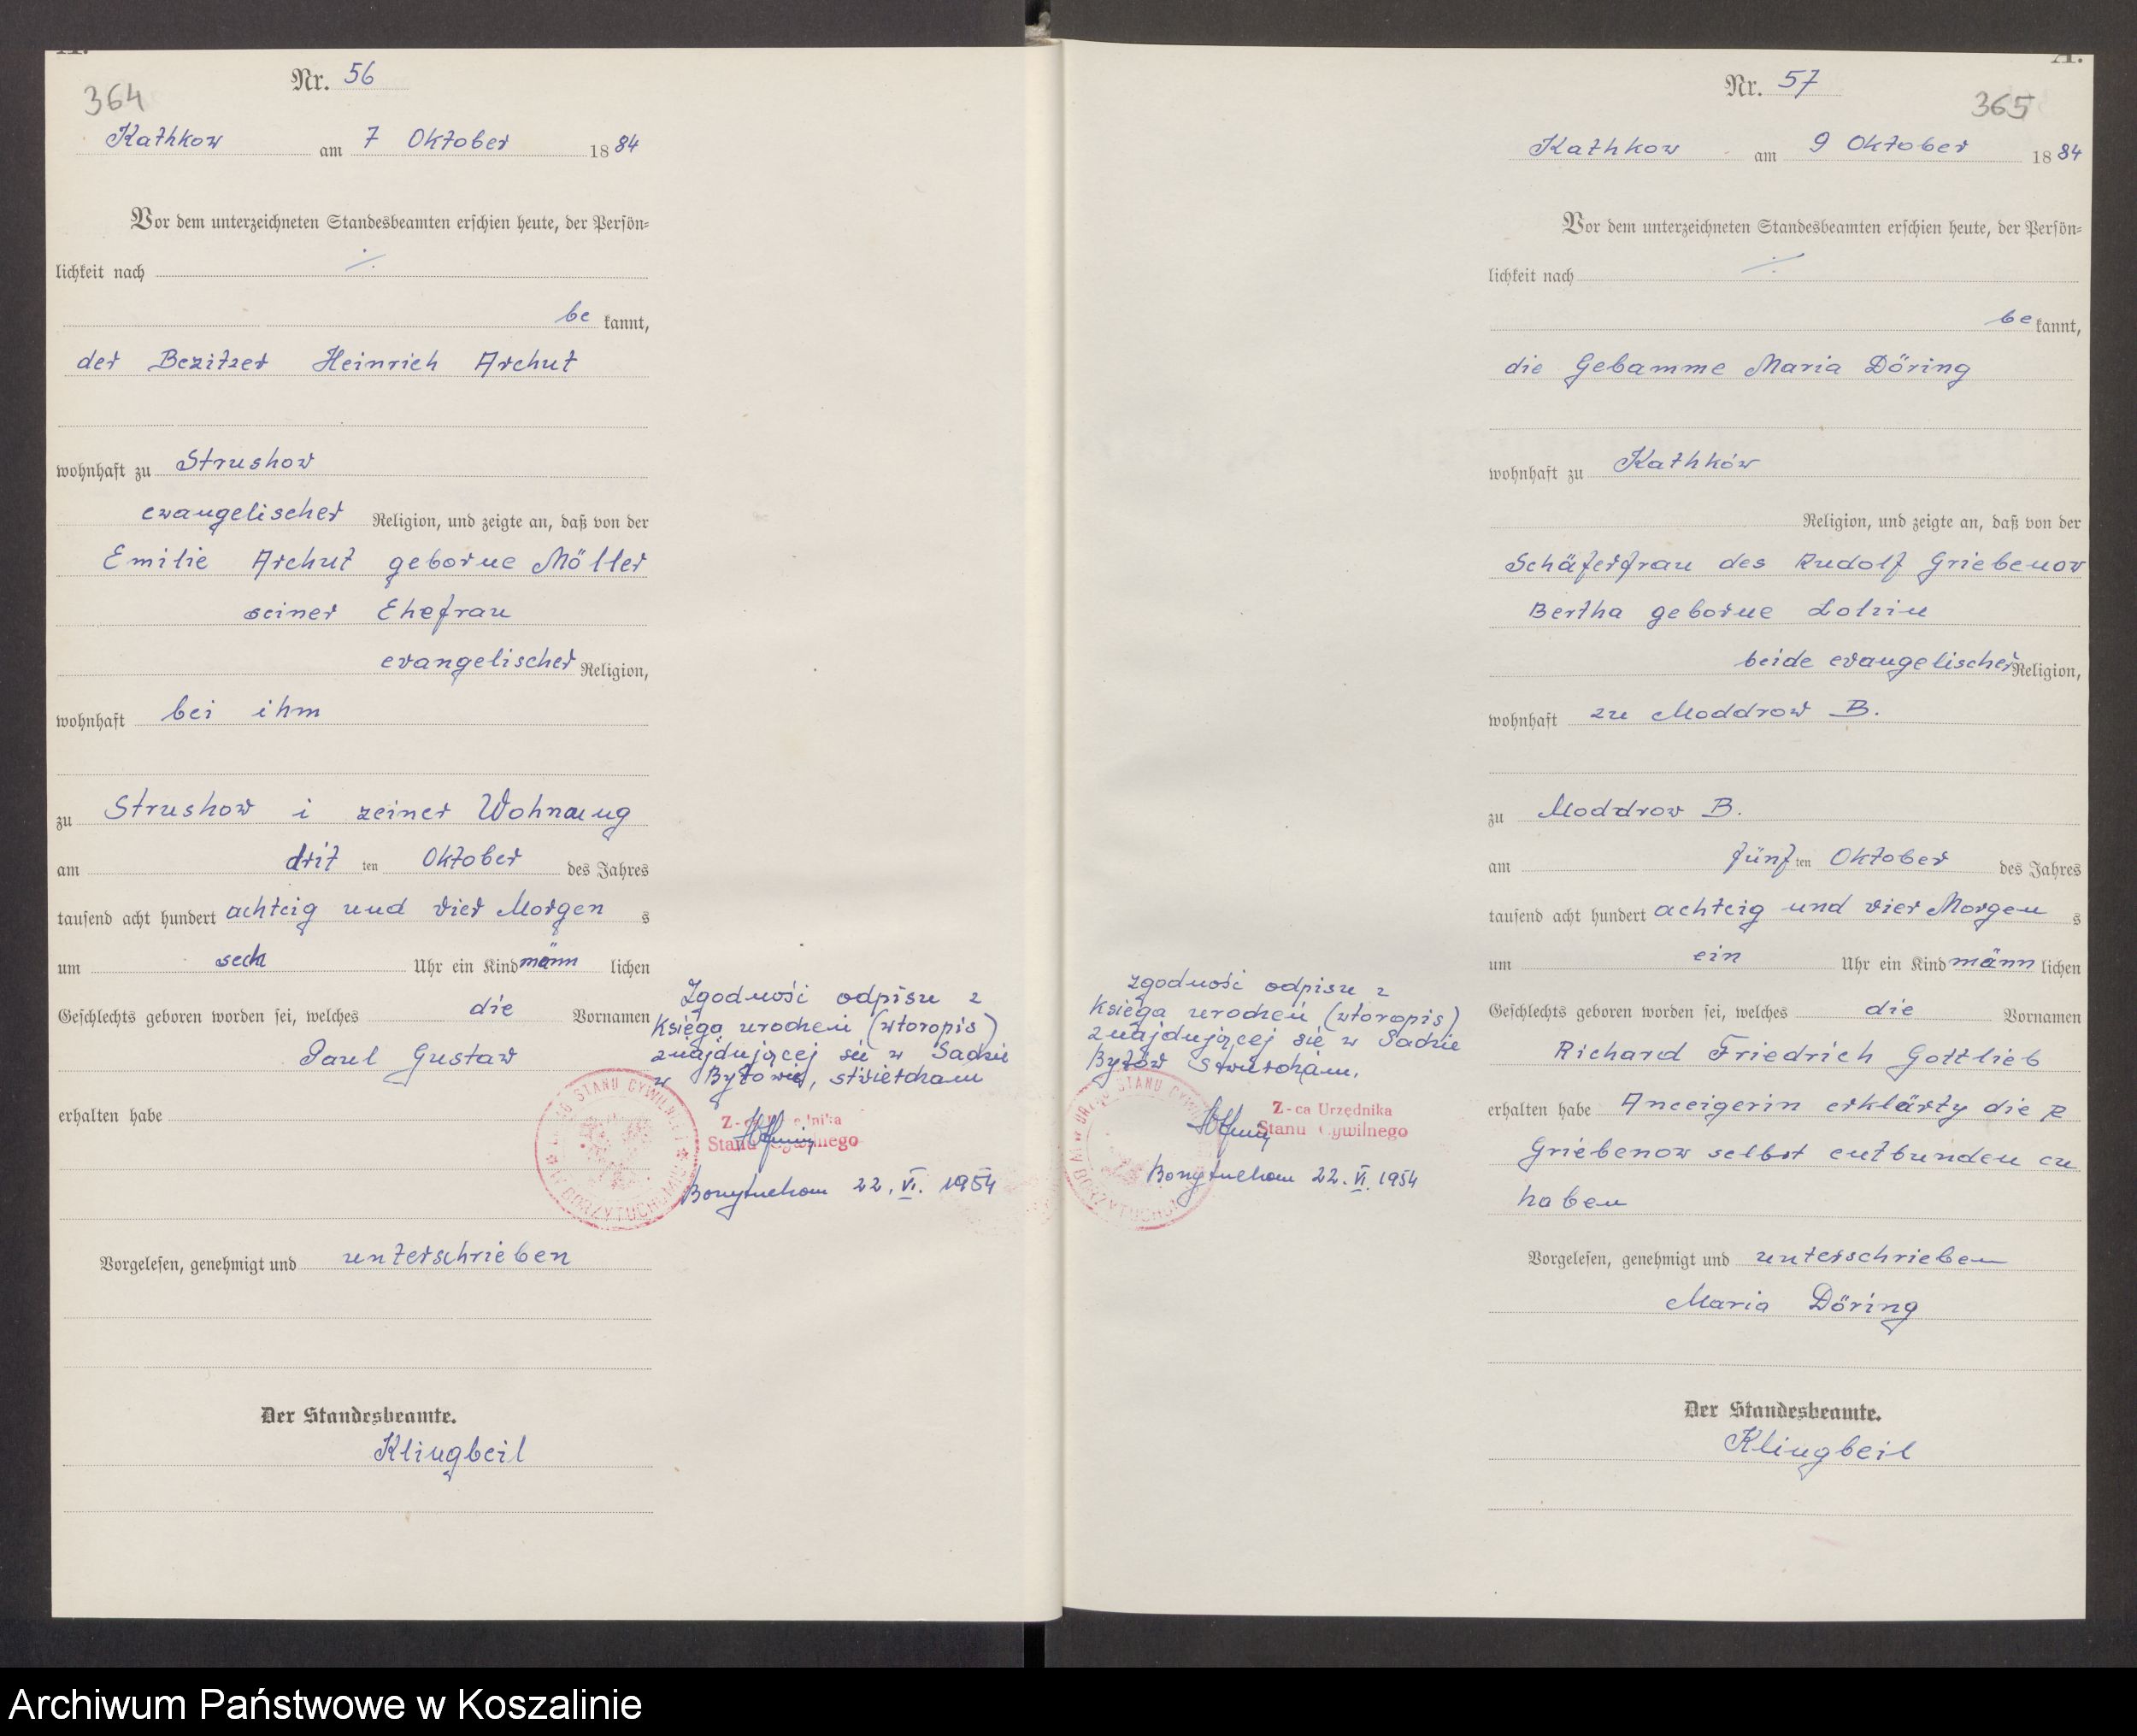 364
Nr. 56
Kathkow am 7 Oktober 1884
Vor dem unterzeichneten Standesbeamten erschien heute, der Persön=
lichkeit nach
be kannt,
der Bezitzer Heinrich Archut
wohnhaft zu Strushow
evangelischer Religion, und zeigte an, daß von der
Emilie Archut geborne Möller
seiner Ehefrau
evangelischer Religion,
wohnhaft bei ihm
zu Strushow i zeiner Wohnaug
am drit ten Oktober des Jahres
tausend acht hundert achtcig und vier Morgen s
um sech Uhr ein Kind männ lichen
Geschlechts geboren worden sei, welches die Vornamen
Paul Gustaw
erhalten habe
Vorgelesen, genehmigt und unterschrieben
Der Standesbeamte.
Klingbeil
Zgodność odpisu z
Księgą urodzeń (wtoropis)
znajdującej się w Sądzie
w Bytowie, stwierdzam
Stanu Cywilnego
Borzytuchom 22. VI. 1954
Nr. 57
365
Kathkow am 9 Oktober 1884
Vor dem unterzeichneten Standesbeamten erschien heute, der Persön=
lichkeit nach
be kannt,
die Gebamme Maria Döring
wohnhaft zu Kathków
Religion, und zeigte an, daß von der
Schäferfrau des Rudolf Griebenow
Bertha geborne Lotzin
beide evangelischer Religion,
wohnhaft zu Moddrow B.
zu Moddrow B.
am fünf ten Oktober des Jahres
tausend acht hundert achtcig und vier Morgen s
um ein Uhr ein Kind männ lichen
Geschlechts geboren worden sei, welches die Vornamen
Richard Friedrich Gottlieb
erhalten habe Anceigerin erklärty die R
Griebenow selbst entbunden cu
haben
Vorgelesen, genehmigt und unterschrieben
Maria Döring
Der Standesbeamte.
Klingbeil
Zgodność odpisu z
Księgą urodzeń (wtoropis)
znajdującej się w Sądzie
Bytów stwierdzam.
Z-ca Urzędnika
Stanu Cywilnego
Borzytuchom 22. VI. 1954
Archiwum Państwowe w Koszalinie